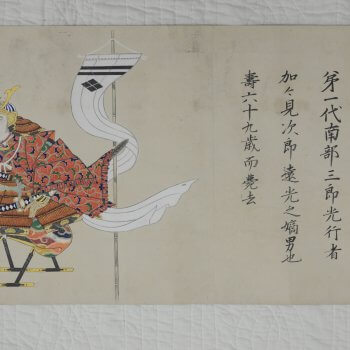 第一代南部三郎光行者
加々見次郎遠光之嫡男也
壽六十九歳而薨去